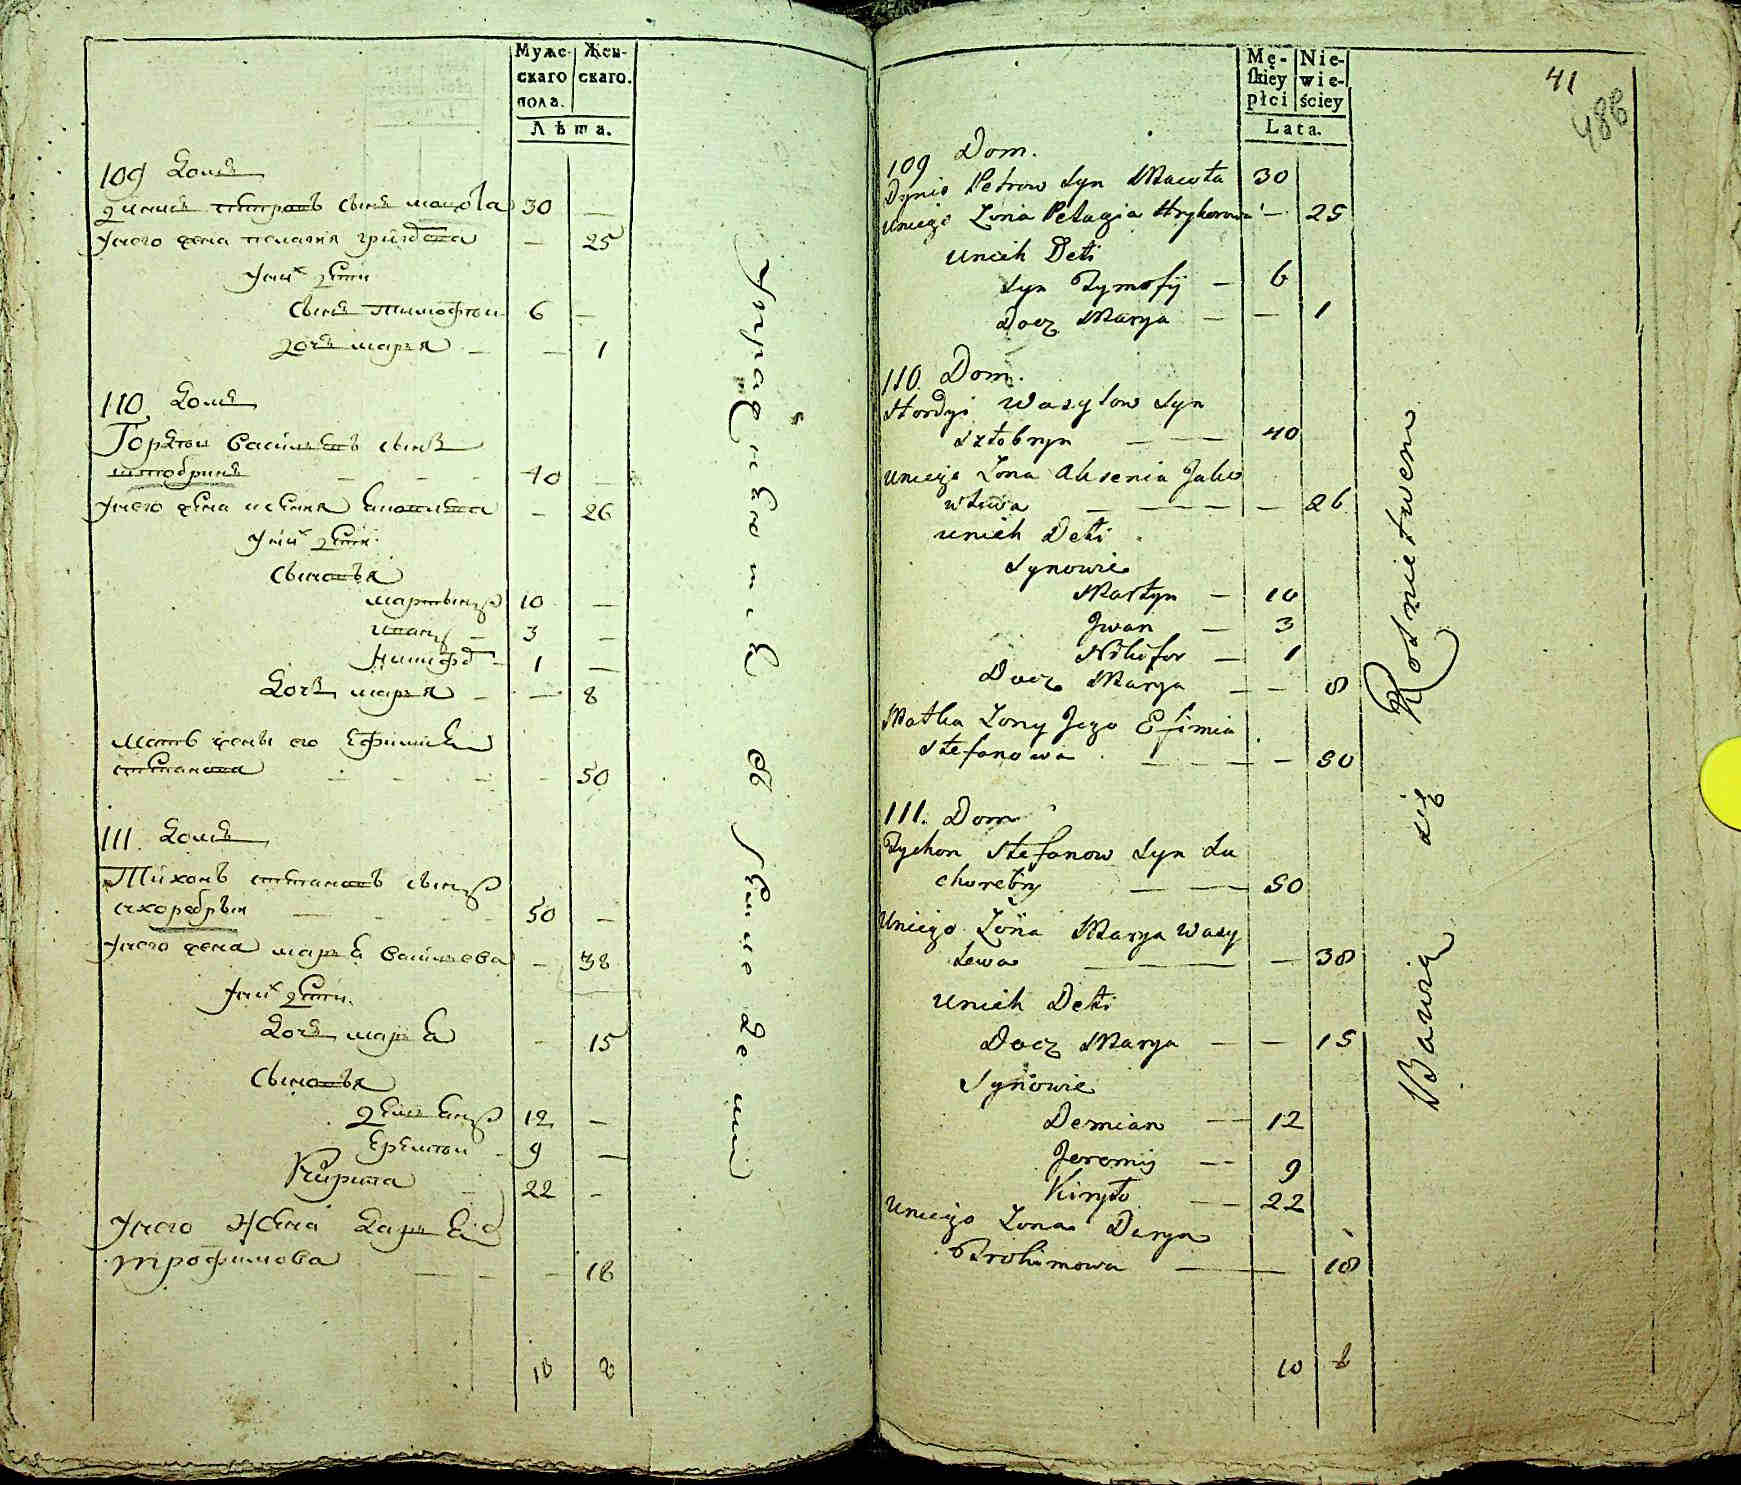 Муже- Жен-
скаго скаго.
пола.
Лѣта.
109 домъ
Денисъ петровъ сынъ мацота 30 —
Унего жена пелагея григорева — 25
Уних дети
сынъ тимофеи 6 —
дочь марья — — 1
110 домъ
Гордеи василевъ сынъ
штобринъ — — — 40 —
Унего жена аксения — 26
Уних дети
сыновья
мартынъ 10 —
иванъ — 3 —
никифоръ — 1 —
дочь марья — — 8
мать жены его Ефимия
степанова — — — — 50
111 домъ
Тихонъ степановъ сынъ
сухоребрыи — — — 50 —
Унего жена марья василева — 38
Уних дети
дочь марья — 15
сыновья
демьянъ 12 —
еремеи — 9 —
Кирила — 22 —
Унего жена дарья
трофимова — — — 18
10 8
Упражняются в земледелии
Mę- Nie-
skiey wie-
płci ściey
Lata.
41
486
109 Dom.
Dynis Petrow Syn Macota 30
Uniego Zona Pelagia Hryhorowa — 25
Unich Deti
Syn Tymofij — 6
Docz Marya — — 1
110. Dom.
Hordyi Wasylow Syn
Sztobryn — — 40
Uniego Zona Aksenia Jako
wlewa — — — — 26
Unich Deti
Synowie
Martyn — 10
Jwan — 3
Nikifor — 1
Docz Marya — — 8
Matka Zony Jego Efimia
Stefanowa — — — — 50
111. Dom
Tychon Stefanow Syn Su
chorebry — — 50
Uniego Zona Marya Wasy
lewa — — 38
Unich Deti
Docz Marya — — 15
Synowie
Demian — 12
Jeremij — 9
Kiryło — 22
Uniego Zona Darya
Trohimowa — 18
10 8
Bawią się Rolnictwem